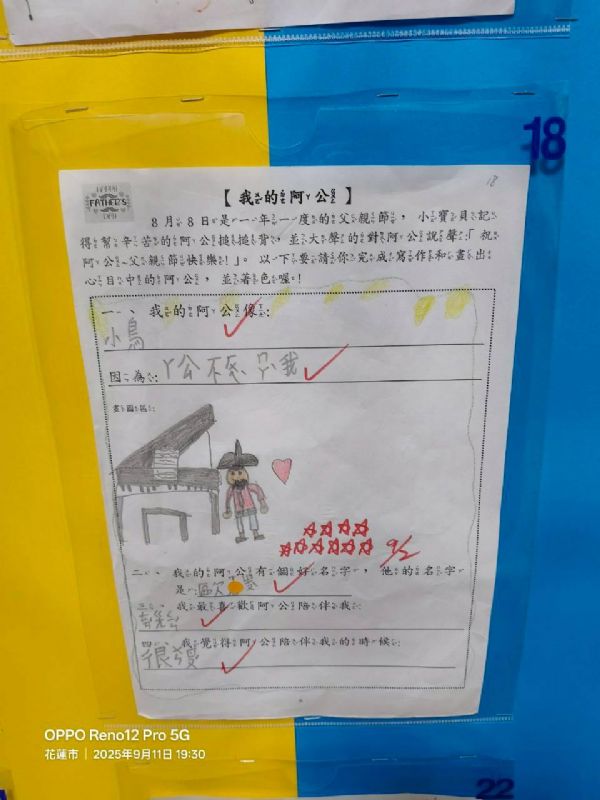 18
18
HAPPY
FATHER'S
DAY
【我的阿公】
8月8日是一年一度的父親節，小寶貝記
得幫辛苦的阿公搥搥背，並大聲的對阿公說聲「祝
阿公父親節快樂!」。以下要請你完成寫作和畫出
心目中的阿公，並著色喔!
一、我的阿公像:
小鳥
因為: ㄚ公
畫圖區:
9/2
二、我的阿公有個好名字，他的名字
是:
三、我最喜歡阿公陪伴我:
四、我覺得阿公陪伴我的時候:
很
OPPO Reno12 Pro 5G
花蓮市 | 2025年9月11日 19:30
22